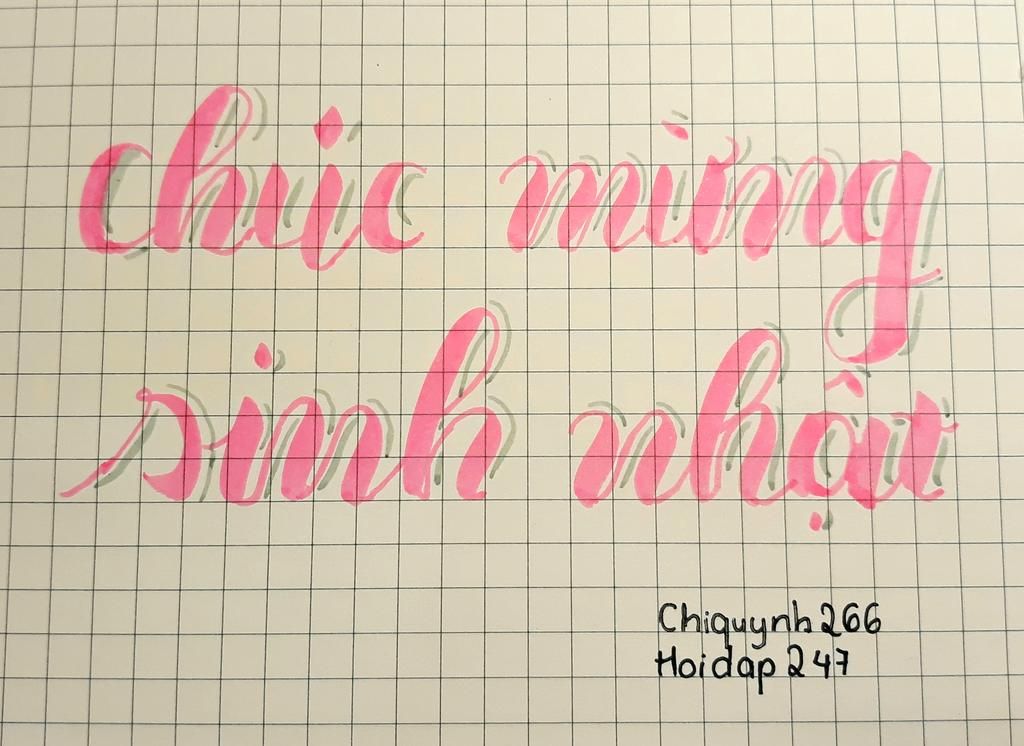 chúc mừng
sinh nhật
Chiquynh266
Hoidap 247